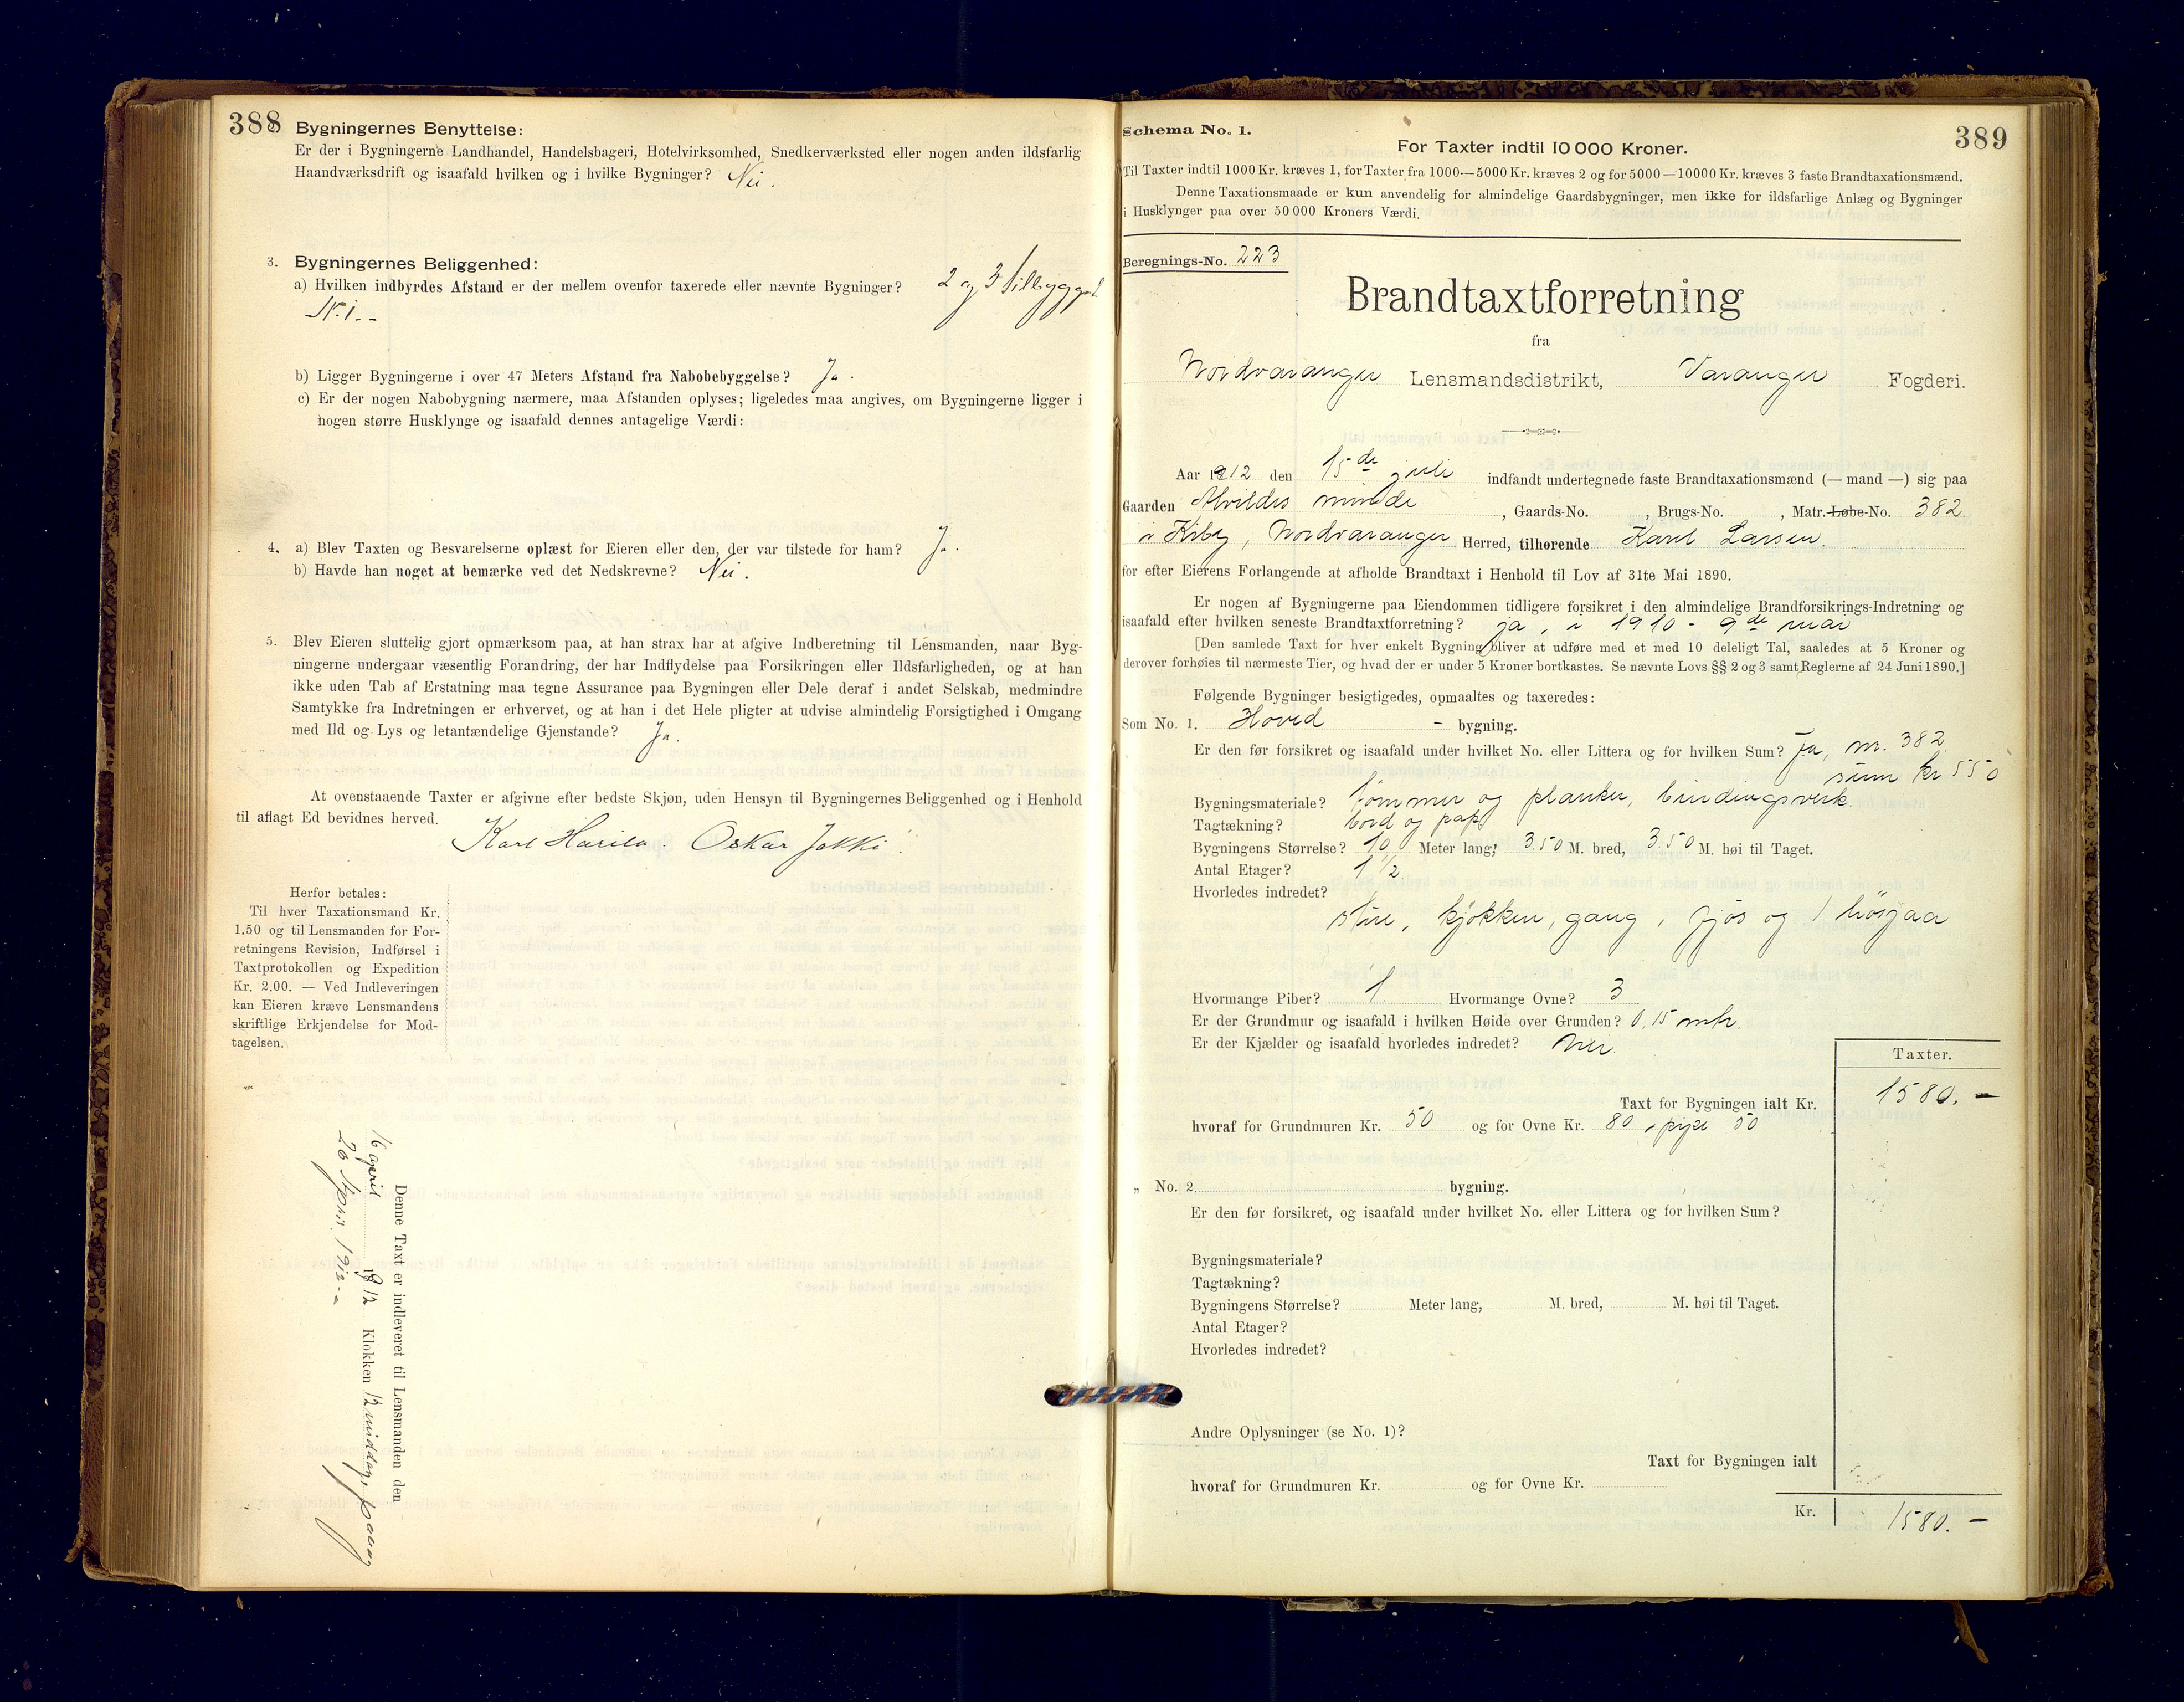 388
2. Bygningernes Benyttelse:
Er der i Bygningerne Landhandel, Handelsbageri, Hotelvirksomhed, Snedkerværksted eller nogen anden ildsfarlig
Haandværksdrift og isaafald hvilken og i hvilke Bygninger? Nei.
3. Bygningernes Beliggenhed:
a) Hvilken indbyrdes Afstand er der mellem ovenfor taxerede eller nævnte Bygninger? 2 og 3 tilbygget
N. 1. -
b) Ligger Bygningerne i over 47 Meters Afstand fra Nabobebyggelse? Ja.
c) Er der nogen Nabobygning nærmere, maa Afstanden oplyses; ligeledes maa angives, om Bygningerne ligger i
nogen større Husklynge og isaafald dennes antagelige Værdi:
4. a) Blev Taxten og Besvarelserne oplæst for Eieren eller den, der var tilstede for ham? Ja.
b) Havde han noget at bemærke ved det Nedskrevne? Nei.
5. Blev Eieren sluttelig gjort opmærksom paa, at han strax har at afgive Indberetning til Lensmanden, naar Byg-
ningerne undergaar væsentlig Forandring, der har Indflydelse paa Forsikringen eller Ildsfarligheden, og at han
ikke uden Tab af Erstatning maa tegne Assurance paa Bygningen eller Dele deraf i andet Selskab, medmindre
Samtykke fra Indretningen er erhvervet, og at han i det Hele pligter at udvise almindelig Forsigtighed i Omgang
med Ild og Lys og letantændelige Gjenstande? Ja.
At ovenstaaende Taxter er afgivne efter bedste Skjøn, uden Hensyn til Bygningernes Beliggenhed og i Henhold
til aflagt Ed bevidnes herved.
Karl Harila. Oskar Jokki.
Herfor betales:
Til hver Taxationsmand Kr.
1.50 og til Lensmanden for For-
retningens Revision, Indførsel i
Taxtprotokollen og Expedition
Kr. 2.00. — Ved Indleveringen
kan Eieren kræve Lensmandens
skriftlige Erkjendelse for Mod-
tagelsen.
Denne Taxt er indleveret til Lensmanden den
16 april 1912 Klokken 12 middag,
26 1912
Schema No. 1.
389
For Taxter indtil 10 000 Kroner.
Til Taxter indtil 1000 Kr. kræves 1, for Taxter fra 1000—5000 Kr. kræves 2 og for 5000—10000 Kr. kræves 3 faste Brandtaxationsmænd.
Denne Taxationsmaade er kun anvendelig for almindelige Gaardsbygninger, men ikke for ildsfarlige Anlæg og Bygninger
i Husklynger paa over 50 000 Kroners Værdi.
Beregnings-No. 223
Brandtaxtforretning
fra
Nordvaranger Lensmandsdistrikt, Varanger Fogderi.
Aar 1912 den 15de juli indfandt undertegnede faste Brandtaxationsmænd (— mand —) sig paa
Gaarden Alvildes minde, Gaards-No. , Brugs-No. , Matr.-Løbe-No. 382
i Kiby, Nordvaranger Herred, tilhørende Karl Larsen.
for efter Eierens Forlangende at afholde Brandtaxt i Henhold til Lov af 31te Mai 1890.
Er nogen af Bygningerne paa Eiendommen tidligere forsikret i den almindelige Brandforsikrings-Indretning og
isaafald efter hvilken seneste Brandtaxtforretning? ja, i 1910 - 9de mai
[Den samlede Taxt for hver enkelt Bygning bliver at udføre med et med 10 deleligt Tal, saaledes at 5 Kroner og
derover forhøies til nærmeste Tier, og hvad der er under 5 Kroner bortkastes. Se nævnte Lovs §§ 2 og 3 samt Reglerne af 24 Juni 1890.]
Følgende Bygninger besigtigedes, opmaaltes og taxeredes:
Som No. 1. Hoved - bygning.
Er den før forsikret og isaafald under hvilket No. eller Littera og for hvilken Sum? Ja, nr. 382
sum kr 550
Bygningsmateriale? tømmer og planker, bindingsverk.
Tagtækning? bord og pap
Bygningens Størrelse? 10 Meter lang, 3.50 M. bred, 3.50 M. høi til Taget.
Antal Etager? 1 1/2
Hvorledes indredet?
stue, kjøkken, gang, fjøs og
Hvormange Piber? 1 Hvormange Ovne? 3
Er der Grundmur og isaafald i hvilken Høide over Grunden? 0,15 mtr.
Er der Kjælder og isaafald hvorledes indredet? Nei
Taxter.
Taxt for Bygningen ialt Kr. 1580. —
hvoraf for Grundmuren Kr. 50 og for Ovne Kr. 80, pipe 50
„ No. 2 bygning.
Er den før forsikret, og isaafald under hvilket No. eller Littera og for hvilken Sum?
Bygningsmateriale?
Tagtækning?
Bygningens Størrelse? Meter lang, M. bred, M. høi til Taget.
Antal Etager?
Hvorledes indredet?
Andre Oplysninger (se No. 1)?
Taxt for Bygningen ialt
hvoraf for Grundmuren Kr. og for Ovne Kr.
Kr. 1580. —